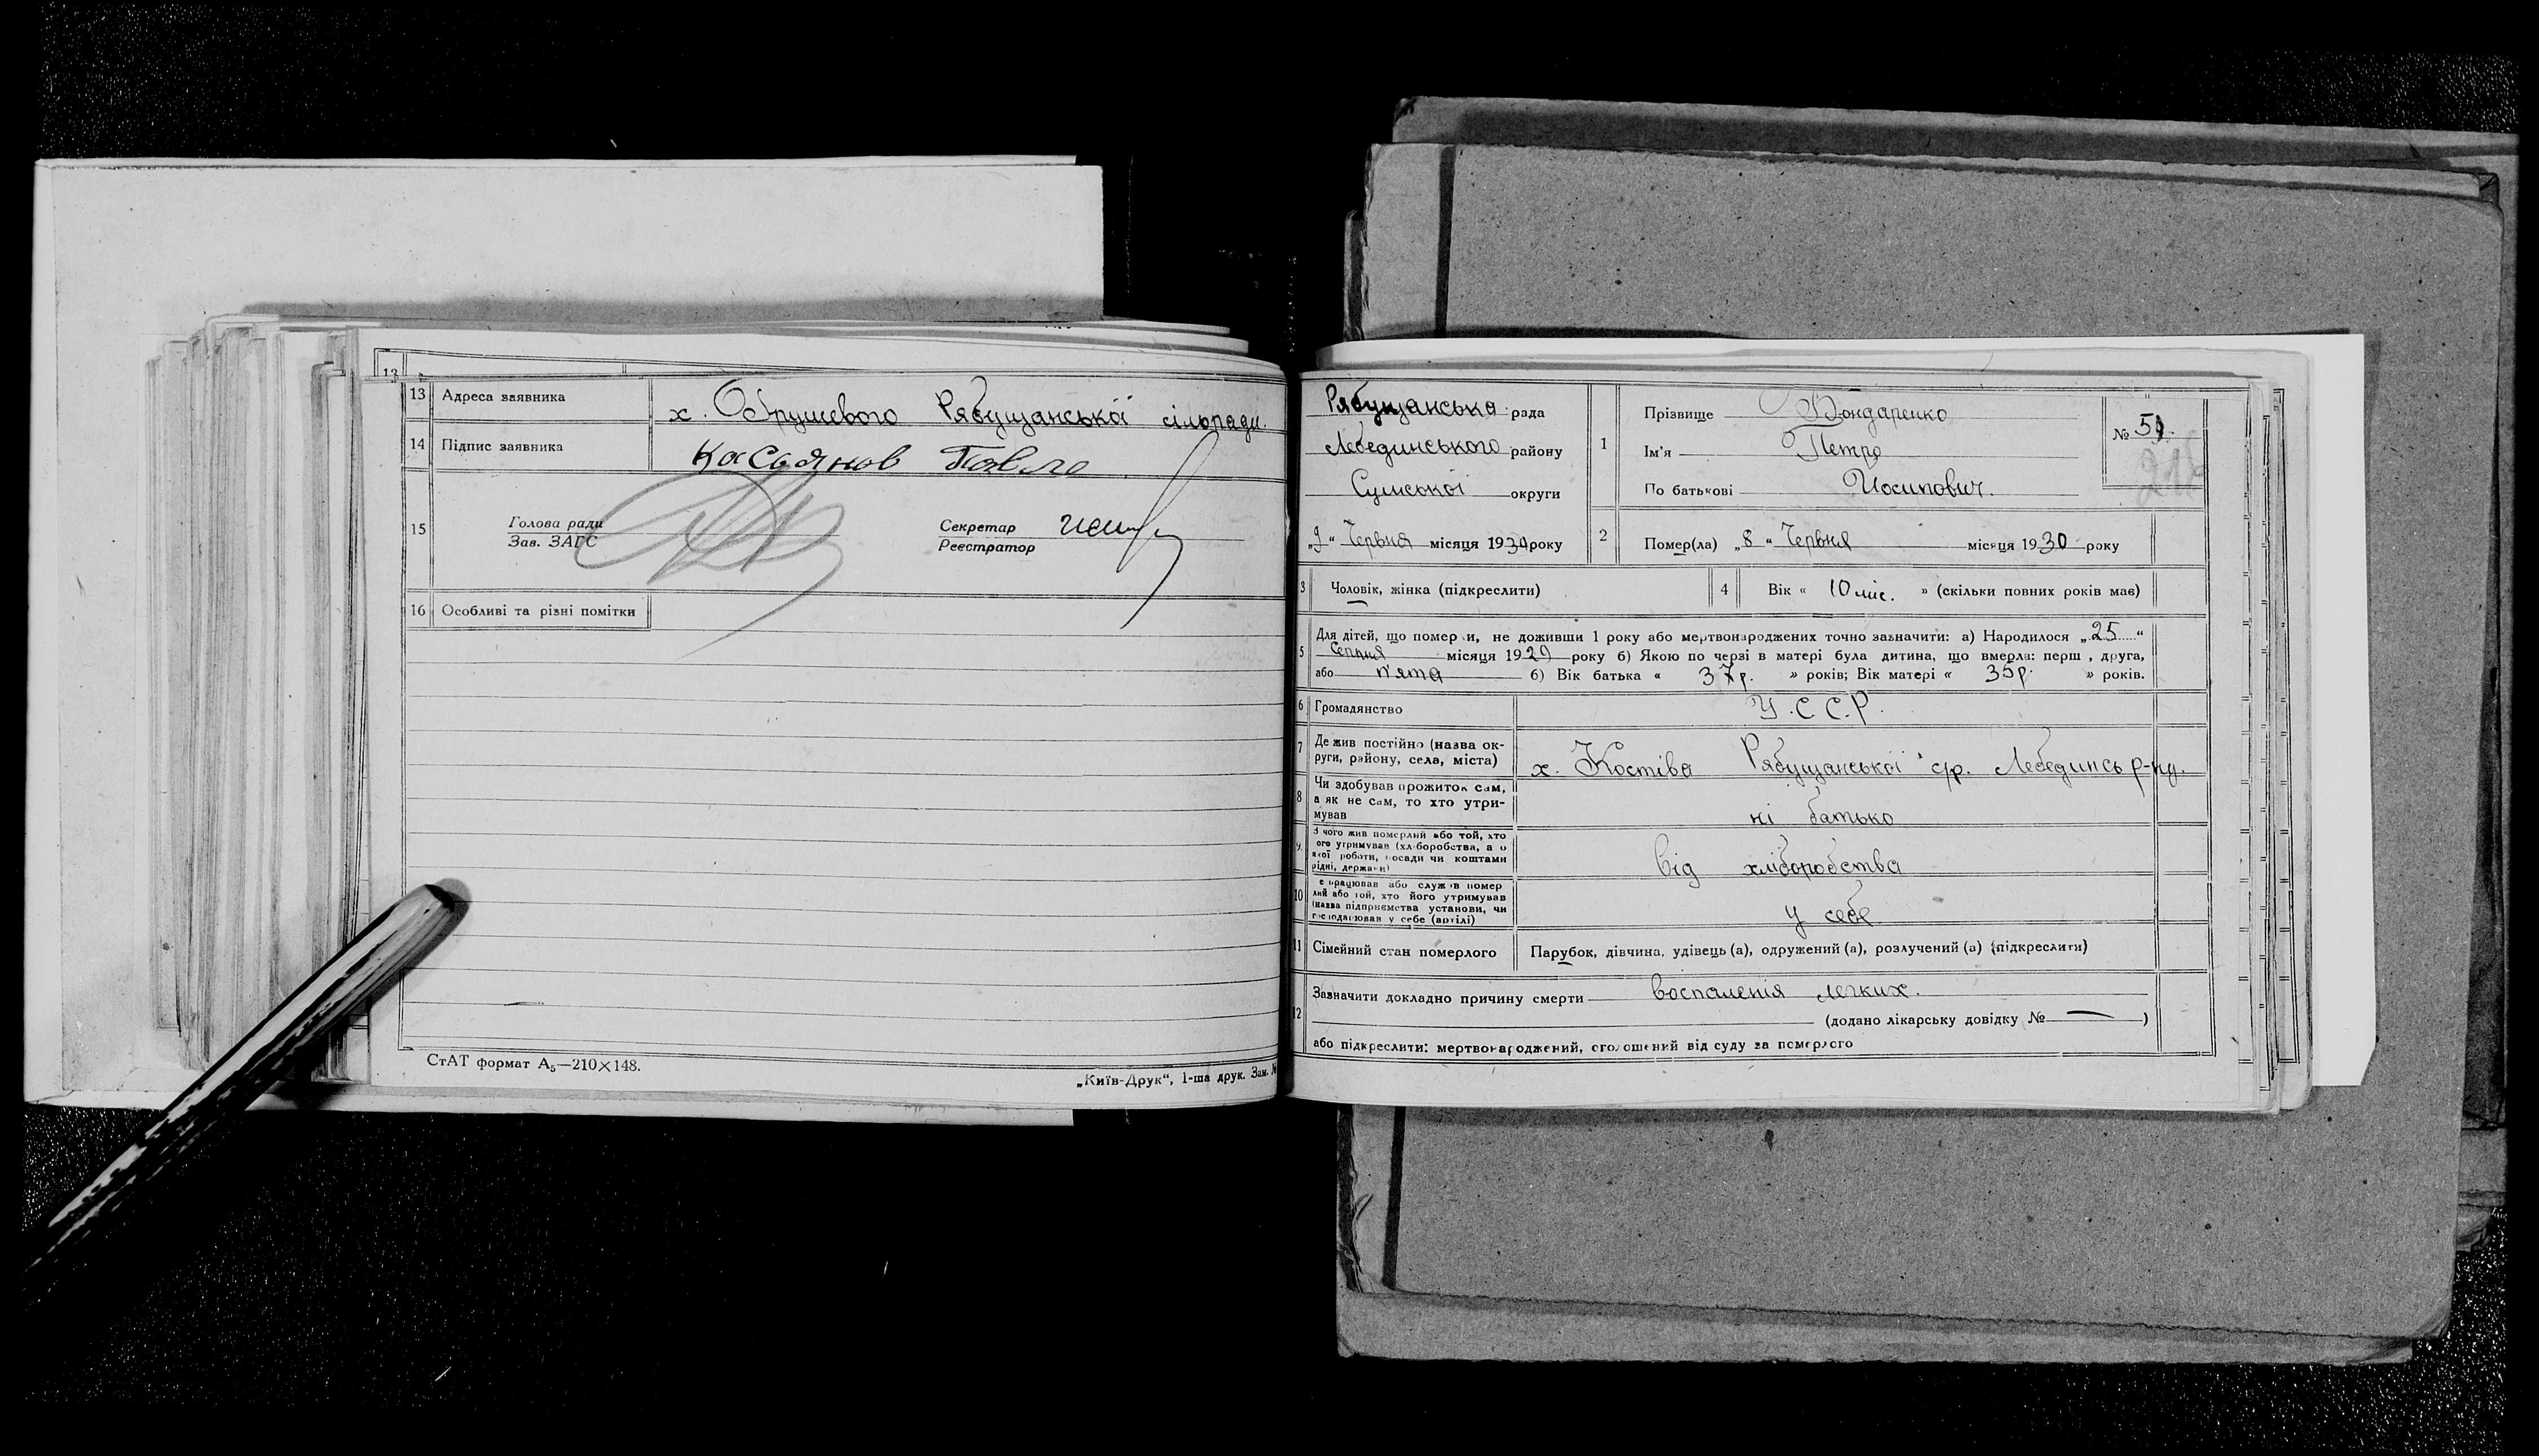 13
13 Адреса заявника х. Обрушевого Рябущанської сільради.
14 Підпис заявника Касьянов Павло
15 Голова ради
Зав. ЗАГС
Секретар
Реєстратор
16 Особливі та різні помітки
СтАТ формат А5—210×148.
„Київ-Друк“, 1-ша друк. Зам. №
Рябущанська рада
Лебединського району
Сумської округи
„9“ Червня місяця 1930 року
1 Прізвище Бондаренко
Ім'я Петро
По батькові Йосипович.
№ 51.
2 Помер(ла) „8“ Червня місяця 1930 року
3 Чоловік, жінка (підкреслити)
4 Вік « 10 міс. » (скільки повних років має)
5 Для дітей, що померли, не доживши 1 року або мертвонароджених точно зазначити: а) Народилося „25“
Серпня місяця 1929 року б) Якою по черзі в матері була дитина, що вмерла: перш , друга,
або п'ята б) Вік батька « 37р. » років; Вік матері « 35р. » років.
6 Громадянство У.С.С.Р.
7 Де жив постійно (назва ок-
руги, району, села, міста) х. Костіва Рябущанської с/р. Лебединсь р-ну.
8 Чи здобував прожиток сам,
а як не сам, то хто утри-
мував ні батько
9 З чого жив померлий або той, хто
ого утримував (хліборобства, а о
якої роботи, посади чи коштами
рідні, держави) від хліборобства
10 е працював або служив помер
лий або той, хто його утримував
(назва підприємства установи, чи
господарював у себе (артілі) у себе
11 Сімейний стан померлого Парубок, дівчина, удівець (а), одружений (а), розлучений (а) (підкреслити)
12 Зазначити докладно причину смерти воспаления легких.
(додано лікарську довідку № — )
або підкреслити: мертвонароджений, оголошений від суду за померлого